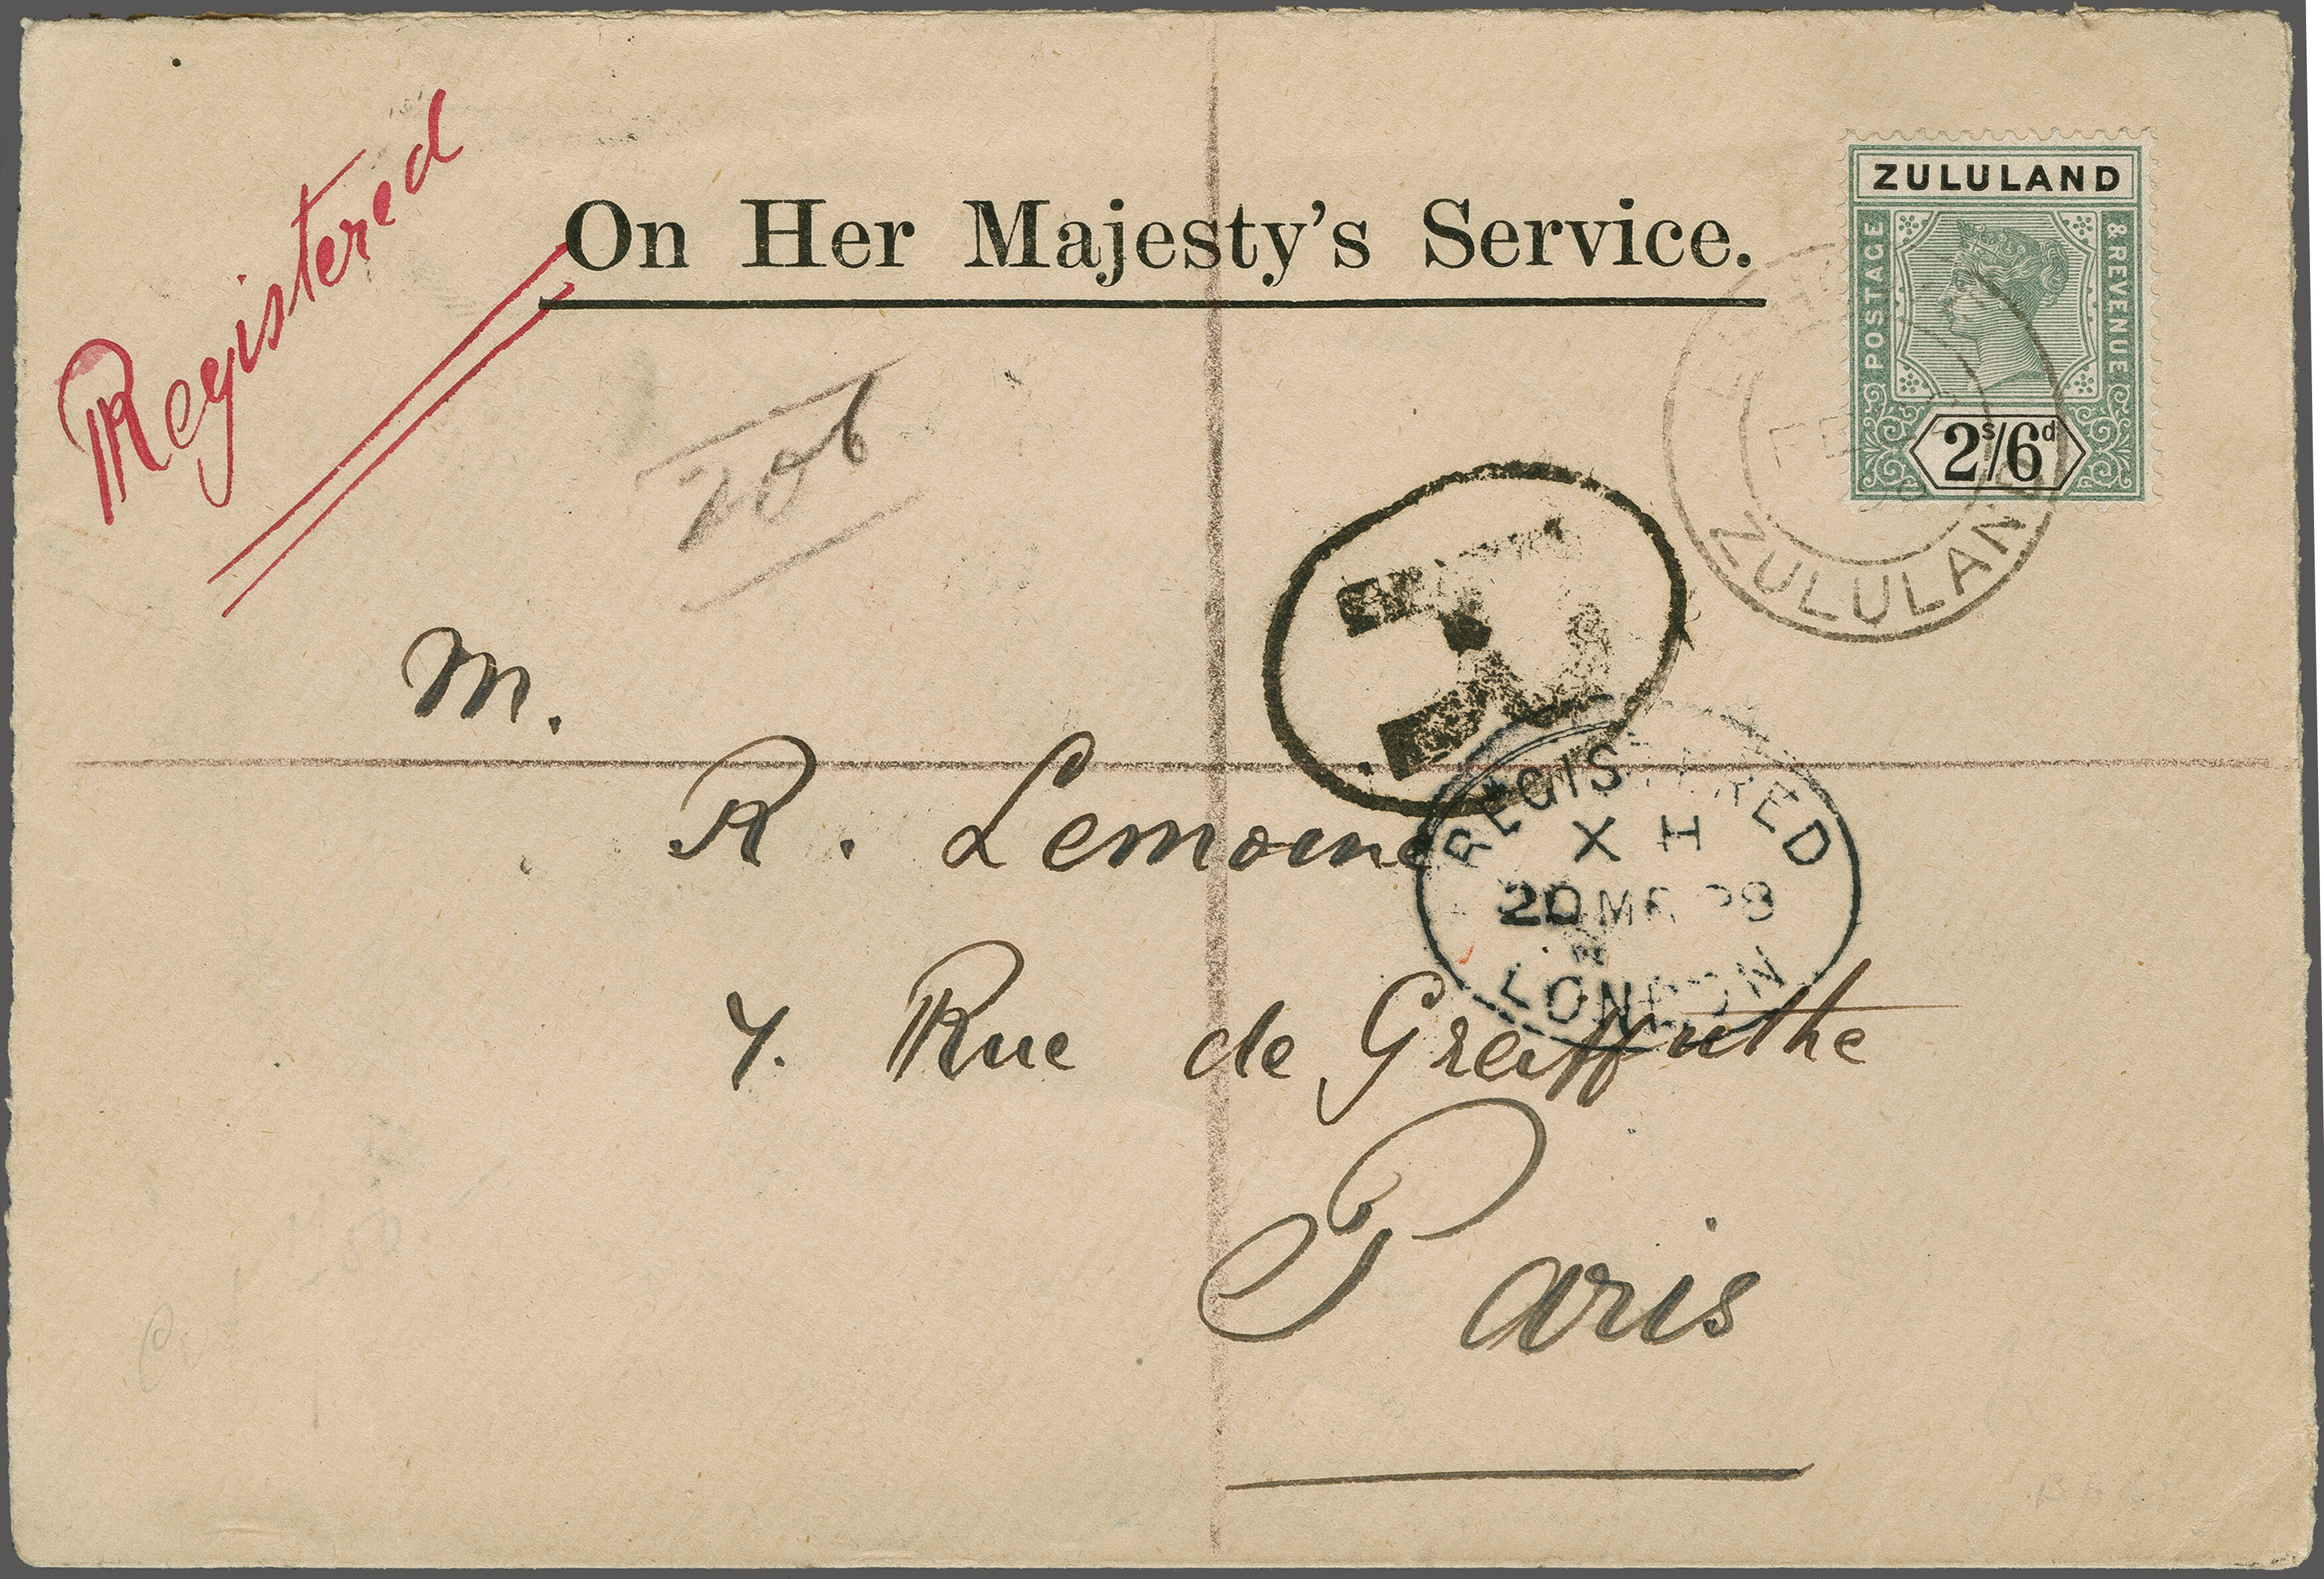 Registered
On Her Majesty's Service.
ZULULAND
POSTAGE
& REVENUE
2s/6d
ZULULAND
206
R
M.
R. Lemoine
REGISTERED
X I
20 MR 98
LONDON
7. Rue de Greffulhe
Paris